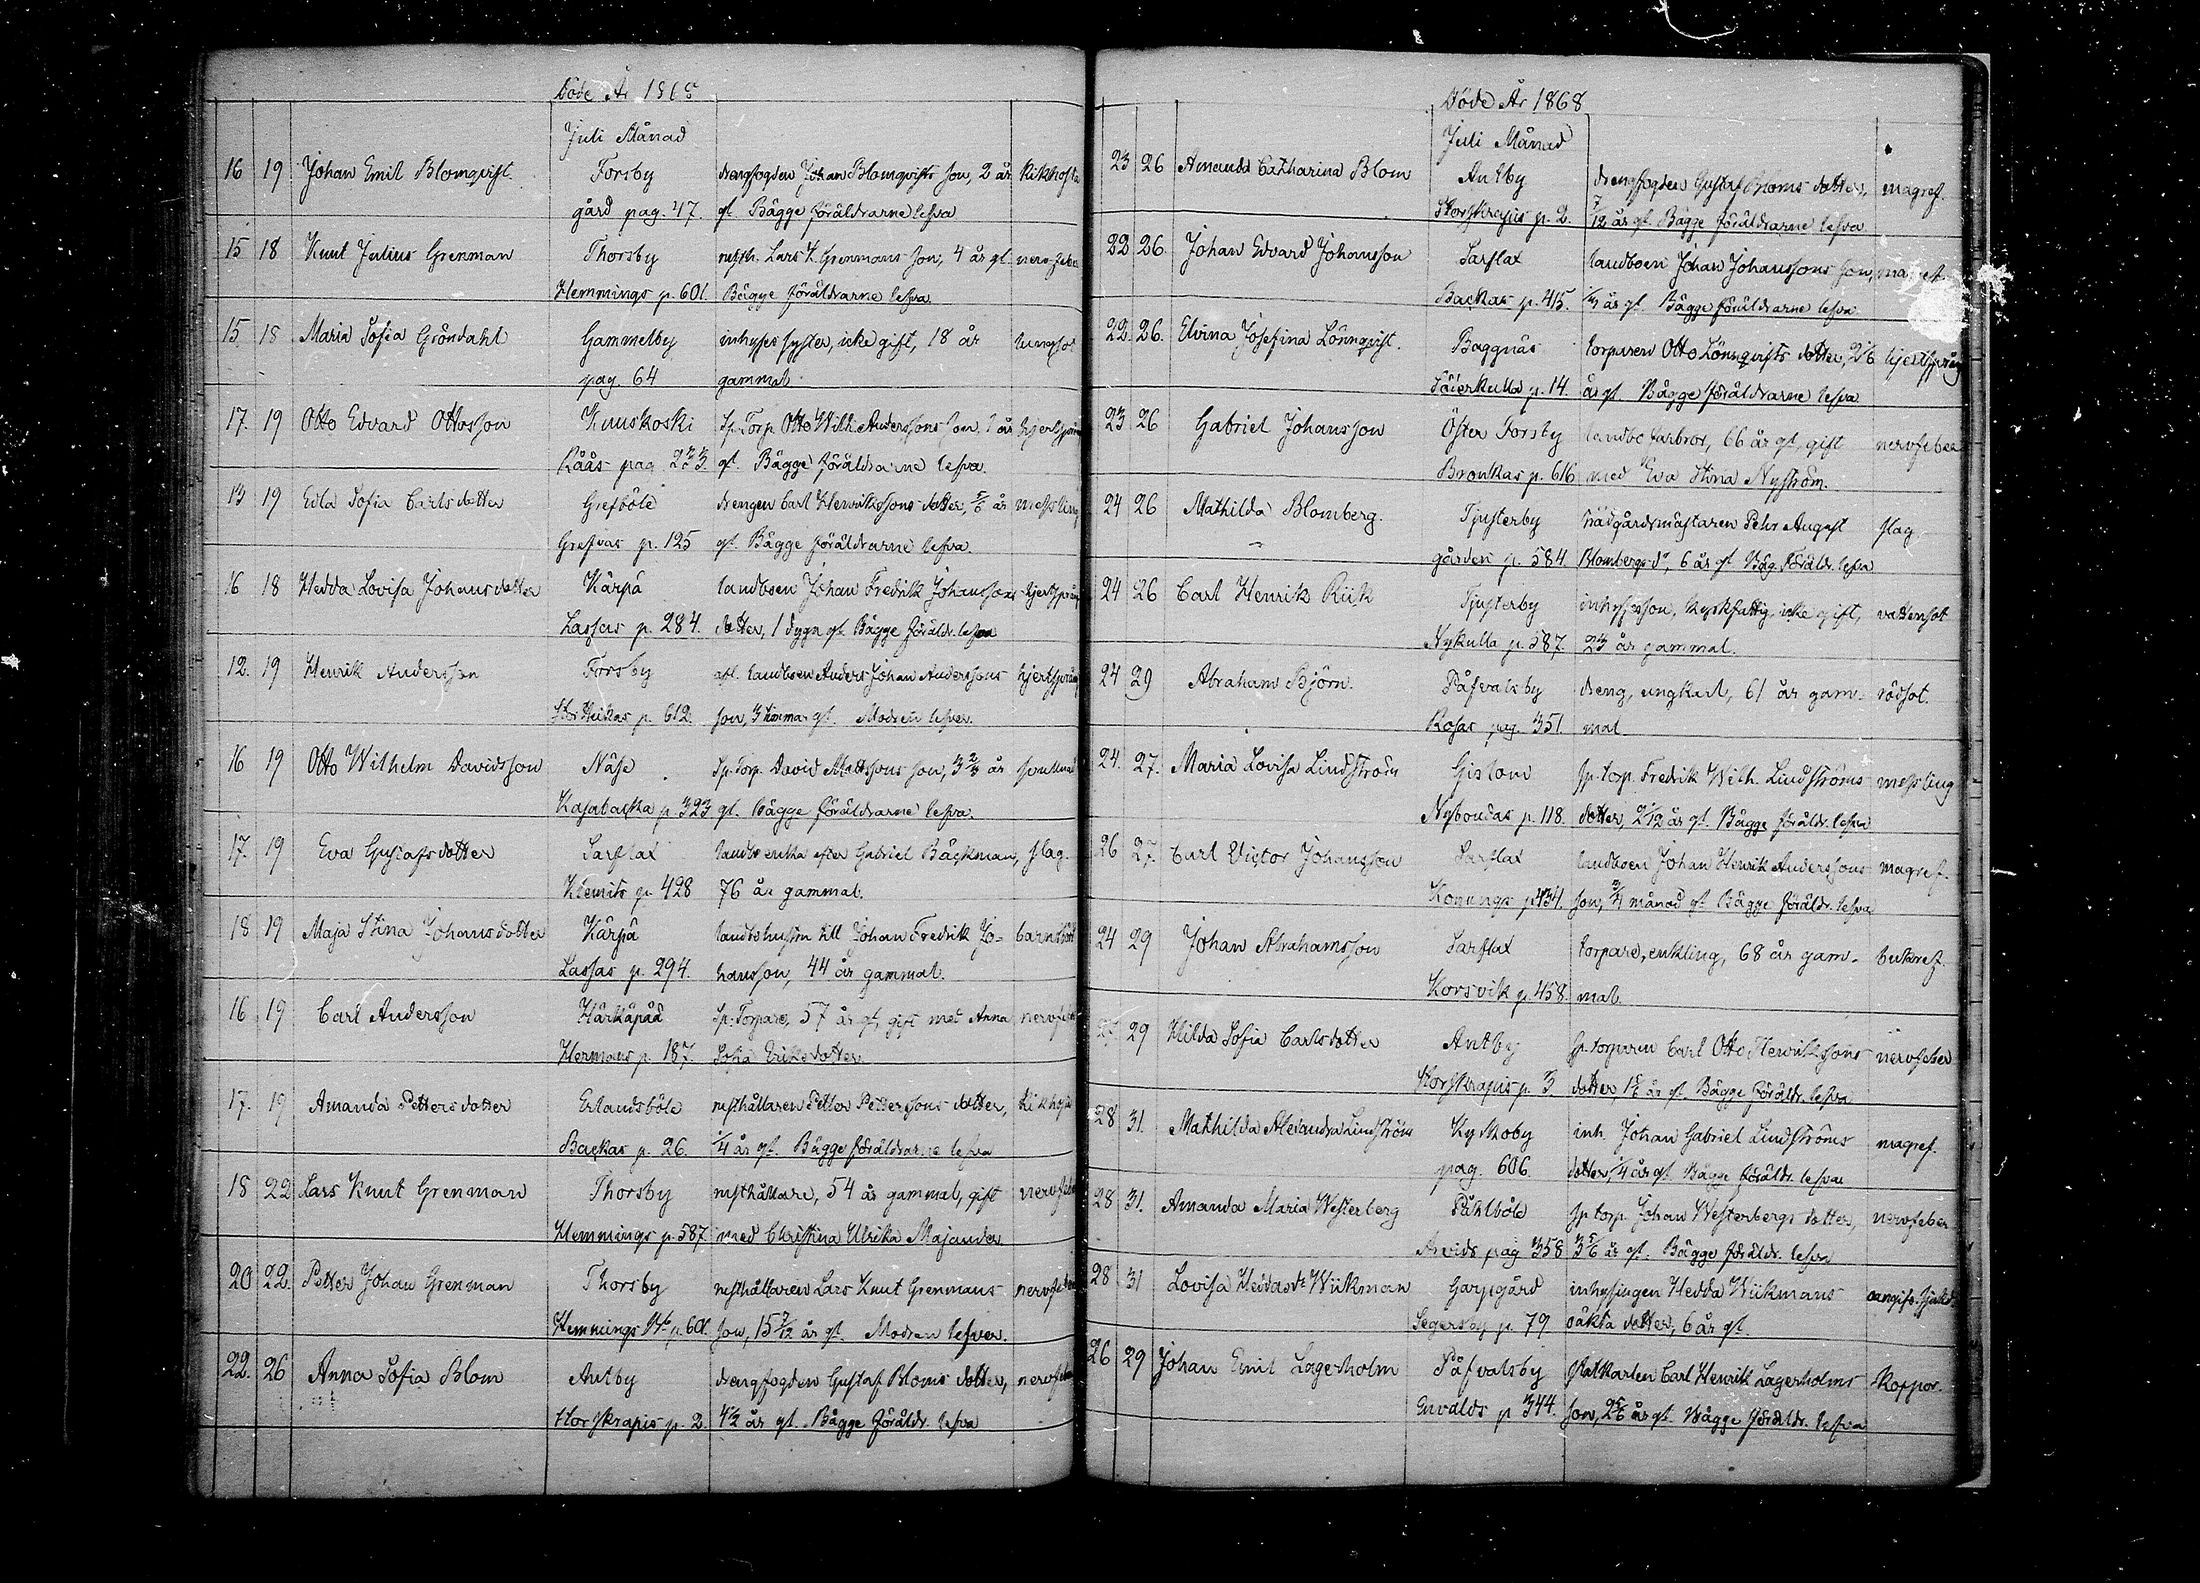 Döde År 1868
Juli Månad
16 19 Johan Emil Blomqvist Forsby drengfogden Johan Blomqvists son, 2 år kikhosta
gård pag. 47. gl Bägge föräldrarne lefva
15 18 Knut Julius Grenman Thorsby rusth. Lars K. Grenmans son, 4 år gl. nervfeber
Hemmings p. 601. Bägge föräldrarne lefva
15. 18 Maria Sofia Gröndahl Gammelby inhyses syster, icke gift, 18 år lungsot
pag. 64 gammal
17. 19 Otto Edvard Ottosson Kuuskoski Sp. Torp. Otto Wilh. Anderssons son, 1 år hjertsprång
Räås pag 233. gl. Bägge föräldrarne lefva.
13 19 Edla Sofia Carlsdotter Grefböle drengen Carl Henrikssons dotter, 5/6 år messling
Grefvas p. 125 gl. Bägge föräldrarne lefva.
16 18 Hedda Lovisa Johansdotter Kärpä landboen Johan Fredrik Johanssons hjertsprång
Lassas p. 284. dotter, 1 dygn gl. Bägge föräldr. lefva
12. 19 Henrik Andersson Forsby afl. landboen Anders Johan Anderssons hjertsprång
p. 612. son, 3 timmar gl. Modren lefver.
16 19 Otto Wilhelm Davidsson Näse Sp. Torp. David Mattssons son, 3 2/3 år
Kasabacka p. 323 gl. Bägge föräldrarne lefva.
17. 19 Eva Gustafsdotter Sarflax landb. enka efter Gabriel Bäckman, slag.
Klemits p. 428 76 år gammal.
18 19 Maja Stina Johansdotter Kärpä landbohustru till Johan Fredrik Jo- barnsbörd
Lassas p. 294. hansson, 44 år gammal.
16 19 Carl Andersson Härkäpää Sp. Torpare, 57 år gl, gift med Anna nervfeber
Hermans p. 187. Sofia Eriksdotter.
17. 19 Amanda Pettersdotter Erlandsböle rusthållaren Petter Petterssons dotter, kikhosta
Backas p. 26. 1/4 år gl. Bägge föräldrarne lefva
18 22 Lars Knut Grenman Thorsby rusthållare, 54 år gammal, gift nervfeber
Hemmings p. 587. med Christina Ulrika Majander
20 22. Petter Johan Grenman Thorsby rusthållaren Lars Knut Grenmans nervfeber
Hemmings p. 601. son, 15 7/12 år gl. Modren lefver.
22. 26 Anna Sofia Blom Antby drengfogden Gustaf Bloms dotter, nervfeber
Storskrapis p. 2. 4 1/2 år gl. Bägge föräldr. lefva
Döde År 1868
Juli Månad
23 26 Amanda Catharina Blom Antby drengfogden Gustaf Bloms dotter, magref.
Storskrapis p. 2. 7/12 år gl. Bägge föräldrarne lefva
22 26. Johan Edvard Johansson Sarflax landboen Johan Johanssons son,
Backas p. 415. år gl. Bägge föräldrarne lefva
22. 26. Elvina Josefina Lönnqvist. Baggnäs torparen Otto Lönnqvists dotter, 2 1/6 hjertsprång
Säierkulla p. 14. år gl. Bägge föräldrarne lefva
23 26 Gabriel Johansson Öster Forsby landbo farbror, 66 år gl, gift nervfeber
Bronkas p. 616 med Eva Stina Nyström.
24 26 Mathilda Blomberg. Tjusterby trädgårdsmästaren Pehr August slag
gården p. 584. Blombergs dr, 6 år gl. Bäg. föräldr. lefva
24 26 Carl Henrik Riisk Tjusterby inhysesson, kyrkfattig, icke gift, vattensot
Nykulla p. 587. 23 år gammal.
24 29 Abraham Björn. Påfvalsby dreng, ungkarl, 61 år gam- rödsot.
Rosas pag. 351. mal
24. 27. Maria Lovisa Lindström Gislom sp. torp. Fredrik Wilh. Lindströms messling
Nybondas p. 118. dotter, 2 1/12 år gl. Bägge föräldr. lefva
26 27. Carl Victor Johansson Sarflax landboen Johan Henrik Anderssons magref.
Konungs p. 434. son, 3/4 månad gl. Bägge föräldr. lefva
24 29 Johan Abrahamsson Sarflax torpare, enkling, 68 år gam- bukref.
Korsvik p. 458. mal.
29 Hilda Sofia Carlsdotter Antby sp. torparen Carl Otto Henrikssons nervfeber
Storskrapis p. 3 dotter, 1 5/6 år gl. Bägge föräldr. lefva
28 31. Mathilda Alexandra Lindström Kyrkoby inh. Johan Gabriel Lindströms magref.
pag. 606. dotter, 1/4 år gl. Bägge föräldr. lefva
28 31. Amanda Maria Westerberg Påhlböle sp. torp. Johan Westerbergs dotter, nervfeber
Arvids pag 358 3 5/6 år gl. Bägge föräldr. lefva
28 31 Lovisa Heddasdr Wiikman Garpgård inhysingen Hedda Wiikmans oangifv. sjukd.
Segersby p. 79 oäkta dotter, 6 år gl.
26 29 Johan Emil Lagerholm Påfvalsby statkarlen Carl Henrik Lagerholms koppor.
Envalds p 344. son, 2 5/6 år gl. Bägge föräldr. lefva